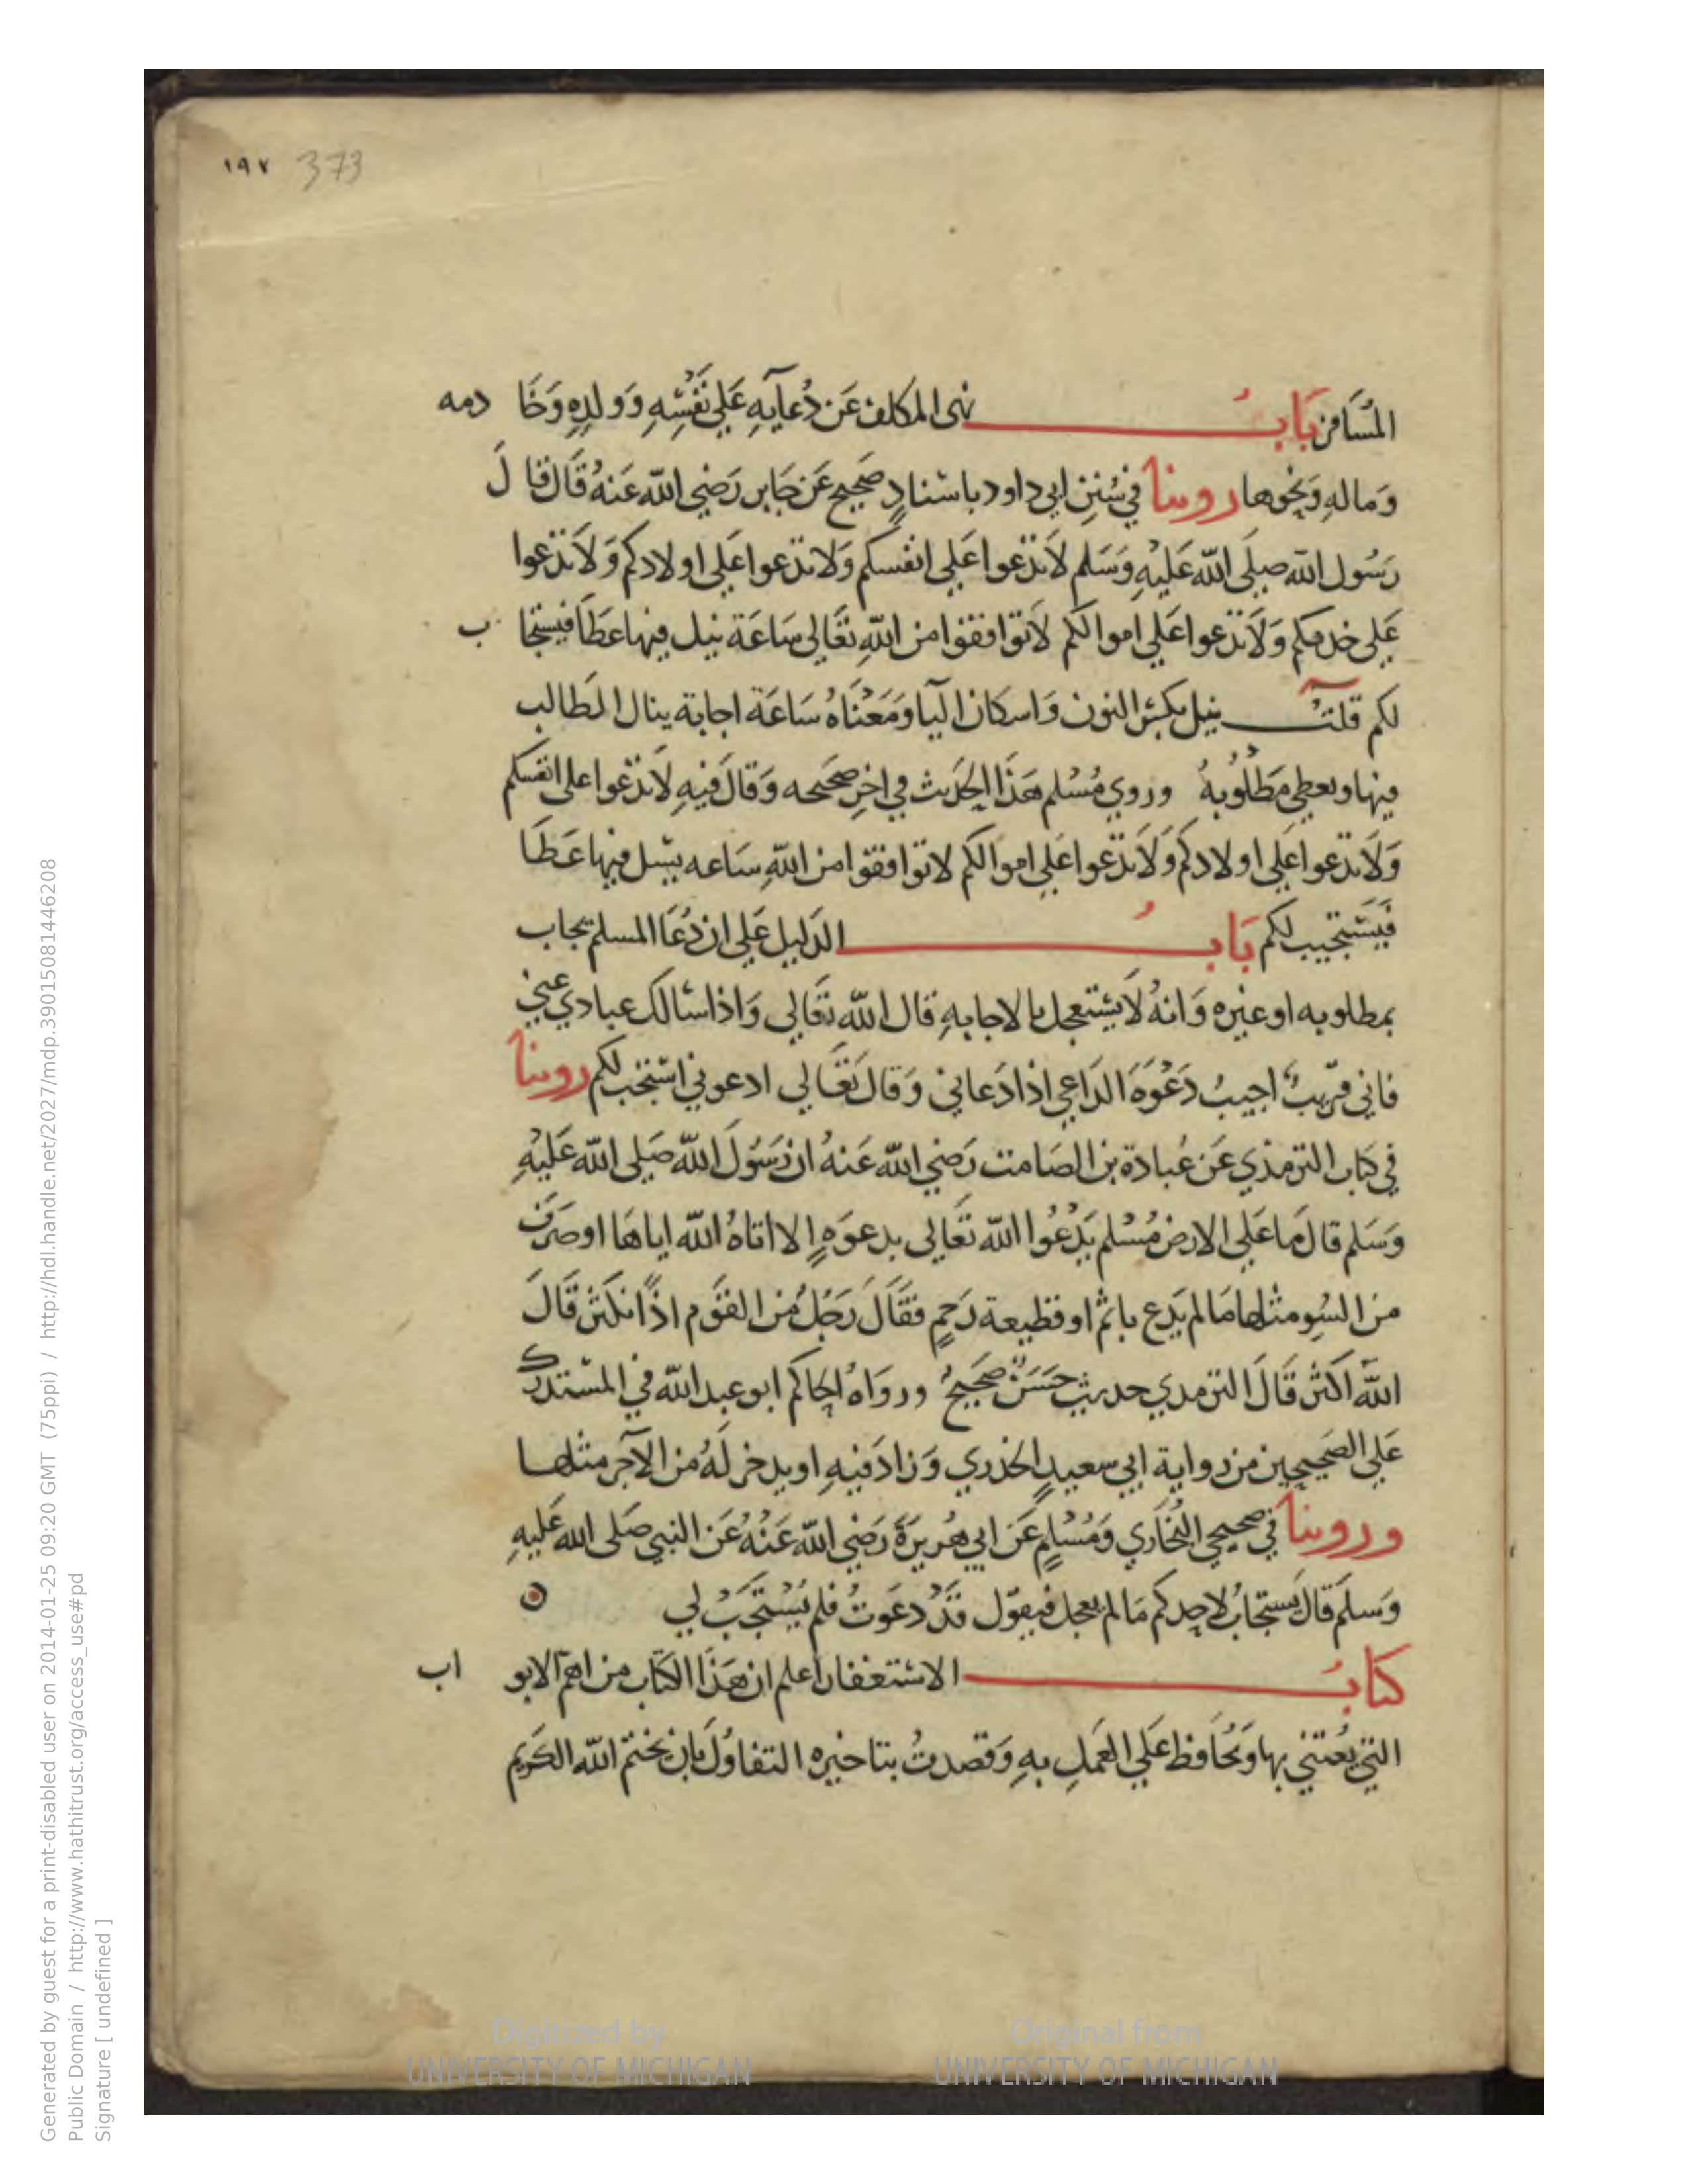 ١٩٧ 373
المُسَافر بَابُ نهى المكلف عَن دُعآيهِ عَلي نَفْسِهِ وَولدِهِ وَخَادمه
وَمالهِ وَنحْوها روينا في سُنَنِ ابي داود باسنادٍ صَحيح عَن جَابر رَضي الله عَنهُ قَال قالَ
رَسُول الله صلى الله عَليْهِ وَسَلم لاَ تدْعوا عَلي انفسكم وَلا تدعوا عَلي اولادكم وَلاَ تدْعوا
عَلى خدمكم وَلاَ تدعوا عَلي اموالكم لاَ توافقوا من اللهِ تعَالى سَاعَة نيل فيها عَطَا فيستجاب
لكم قلتُ نيل بكسْر النون وَاسكان اليا وَمَعْنَاهُ سَاعَة اجابة ينال الطالب
فيها ويعطي مَطْلُوبهُ وروي مُسْلم هَذَا الحَديث في اخرِ صَحيحه وَقالَ فيهِ لاَ تدْعوا على انفسكم
وَلاَ تدعوا عَلي اولادكم وَلاَ تدْعوا عَلي اموالكم لا توافقوا من اللهِ سَاعه يسل فيها عَطَا
فَيَسْتجيب لكم بَابُ الدَليل عَلي ان دُعَا المسلم يجاب
بمطلوبه او غيره وَانهُ لاَ يسْتعجل بالاجابهِ قال الله تعَالي وَاذا سَالك عبادي عني
فاني قريبٌ اجيبُ دَعْوَة الدَاعي اذا دَعاني وَقال تعَالي ادعوني استجب لكم روينا
في كتاب الترمذي عَن عُبادة بن الصَامت رَضي الله عَنهُ ان رَسُولَ الله صَلى الله عَليْهِ
وَسَلم قال مَا عَلي الارض مُسْلم يَدْعُوا الله تعَالي بدعوَهٍ الا اتاهُ الله اياهَا او صَرَف
من السُو مثلها مَا لم يَدع باثم او قطيعة رَحمٍ فقَالَ رَجُلٌ من القوَم اذًا نكثر قَالَ
الله اكثر قَالَ الترمدي حديث حَسَنٌ صَحيحٌ ورواهُ الحاكم ابو عبد الله في المسْتدرك
عَلي الصَحيحين من رواية ابي سعيدٍ الخدري وَزادَ فيهِ او يدخر لهُ من الآجر مثلها
وروينا في صحيحي البُخاري وَمُسْلمٍ عَن ابي هُريرَة رَضي الله عَنْهُ عَن النبي صَلى الله عَليهِ
وَسلمَ قال يُستجابُ لاحدِكم مَا لم يعجل فيقوَل قدْ دعَوتُ فلم يُسْتَجَبْ لي
كتابُ الاسْتغفار اعلم ان هَذَا الكتاب من اهم الابواب
التي يُعتني بها وَيُحَافظ عَلي العَملِ بهِ وَقصدتُ بتاخيره التفاوُل بان يختم الله الكريم
Generated by guest for a print-disabled user on 2014-01-25 09:20 GMT (75ppi) / http://hdl.handle.net/2027/mdp.39015081446208
Public Domain / http://www.hathitrust.org/access_use#pd
Signature [ undefined ]
Digitized by
UNIVERSITY OF MICHIGAN
Original from
UNIVERSITY OF MICHIGAN